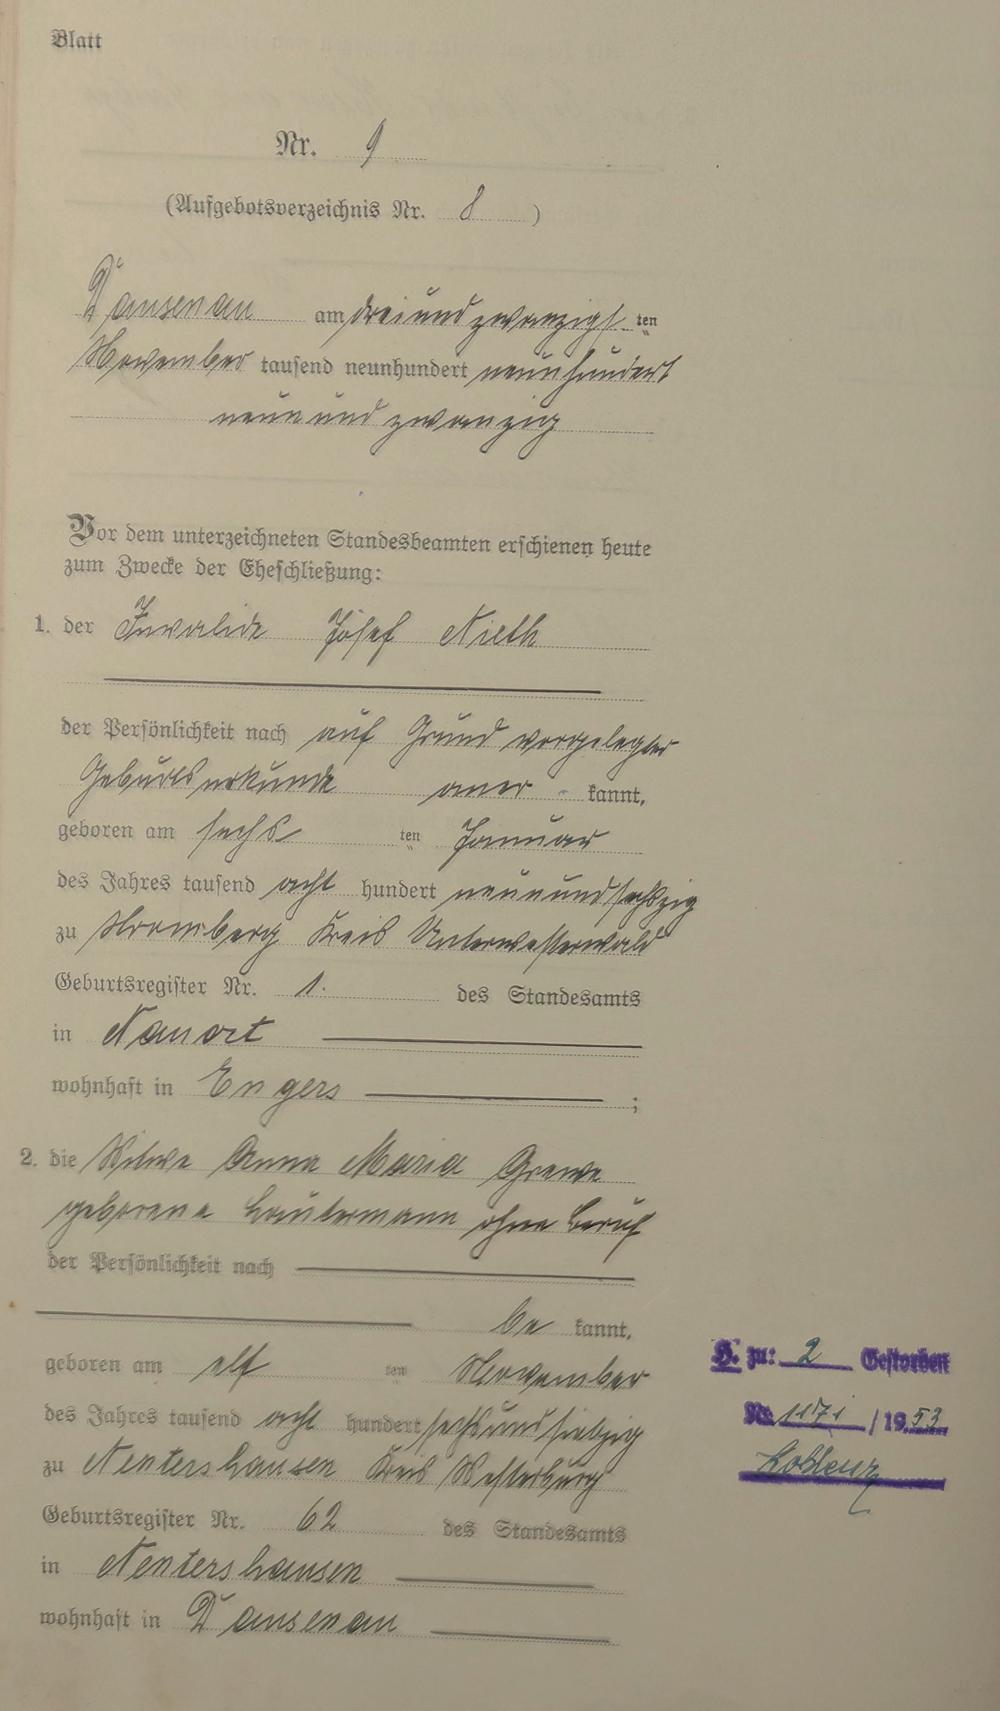 Blatt
Nr. 9
(Aufgebotsverzeichnis Nr. 8 )
Dausenau am drei und zwanzigs ten
November tausend neunhundert neunhundert
neun und zwanzig
Vor dem unterzeichneten Standesbeamten erschienen heute
zum Zwecke der Eheschließung:
1. der Invalide Josef Nieth
der Persönlichkeit nach auf Grund vorgelegter
Geburtsurkunde aner kannt,
geboren am sechs ten Januar
des Jahres tausend acht hundert neunundsechszig
zu Stromberg Kreis Unterwesterwald
Geburtsregister Nr. 1. des Standesamts
in Nauort
wohnhaft in Engers ;
2. die Witwe Anna Maria Grewe
geborene Lautermann ohne Beruf
der Persönlichkeit nach
be kannt,
geboren am elf ten November
des Jahres tausend acht hundert sechs und siebzig
zu Nentershausen Kreis Westerburg
Geburtsregister Nr. 62 des Standesamts
in Nentershausen
wohnhaft in Dausenau
H. zu: 2 Gestorben
Nr. 1171 / 19 53
Koblenz